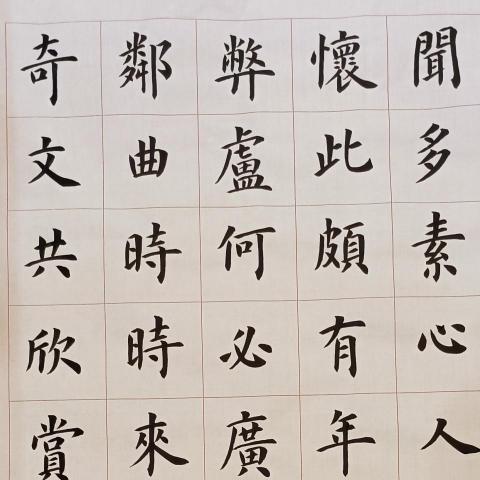 聞多素心人
懷此頗有年
弊盧何必廣
鄰曲時時來
奇文共欣賞